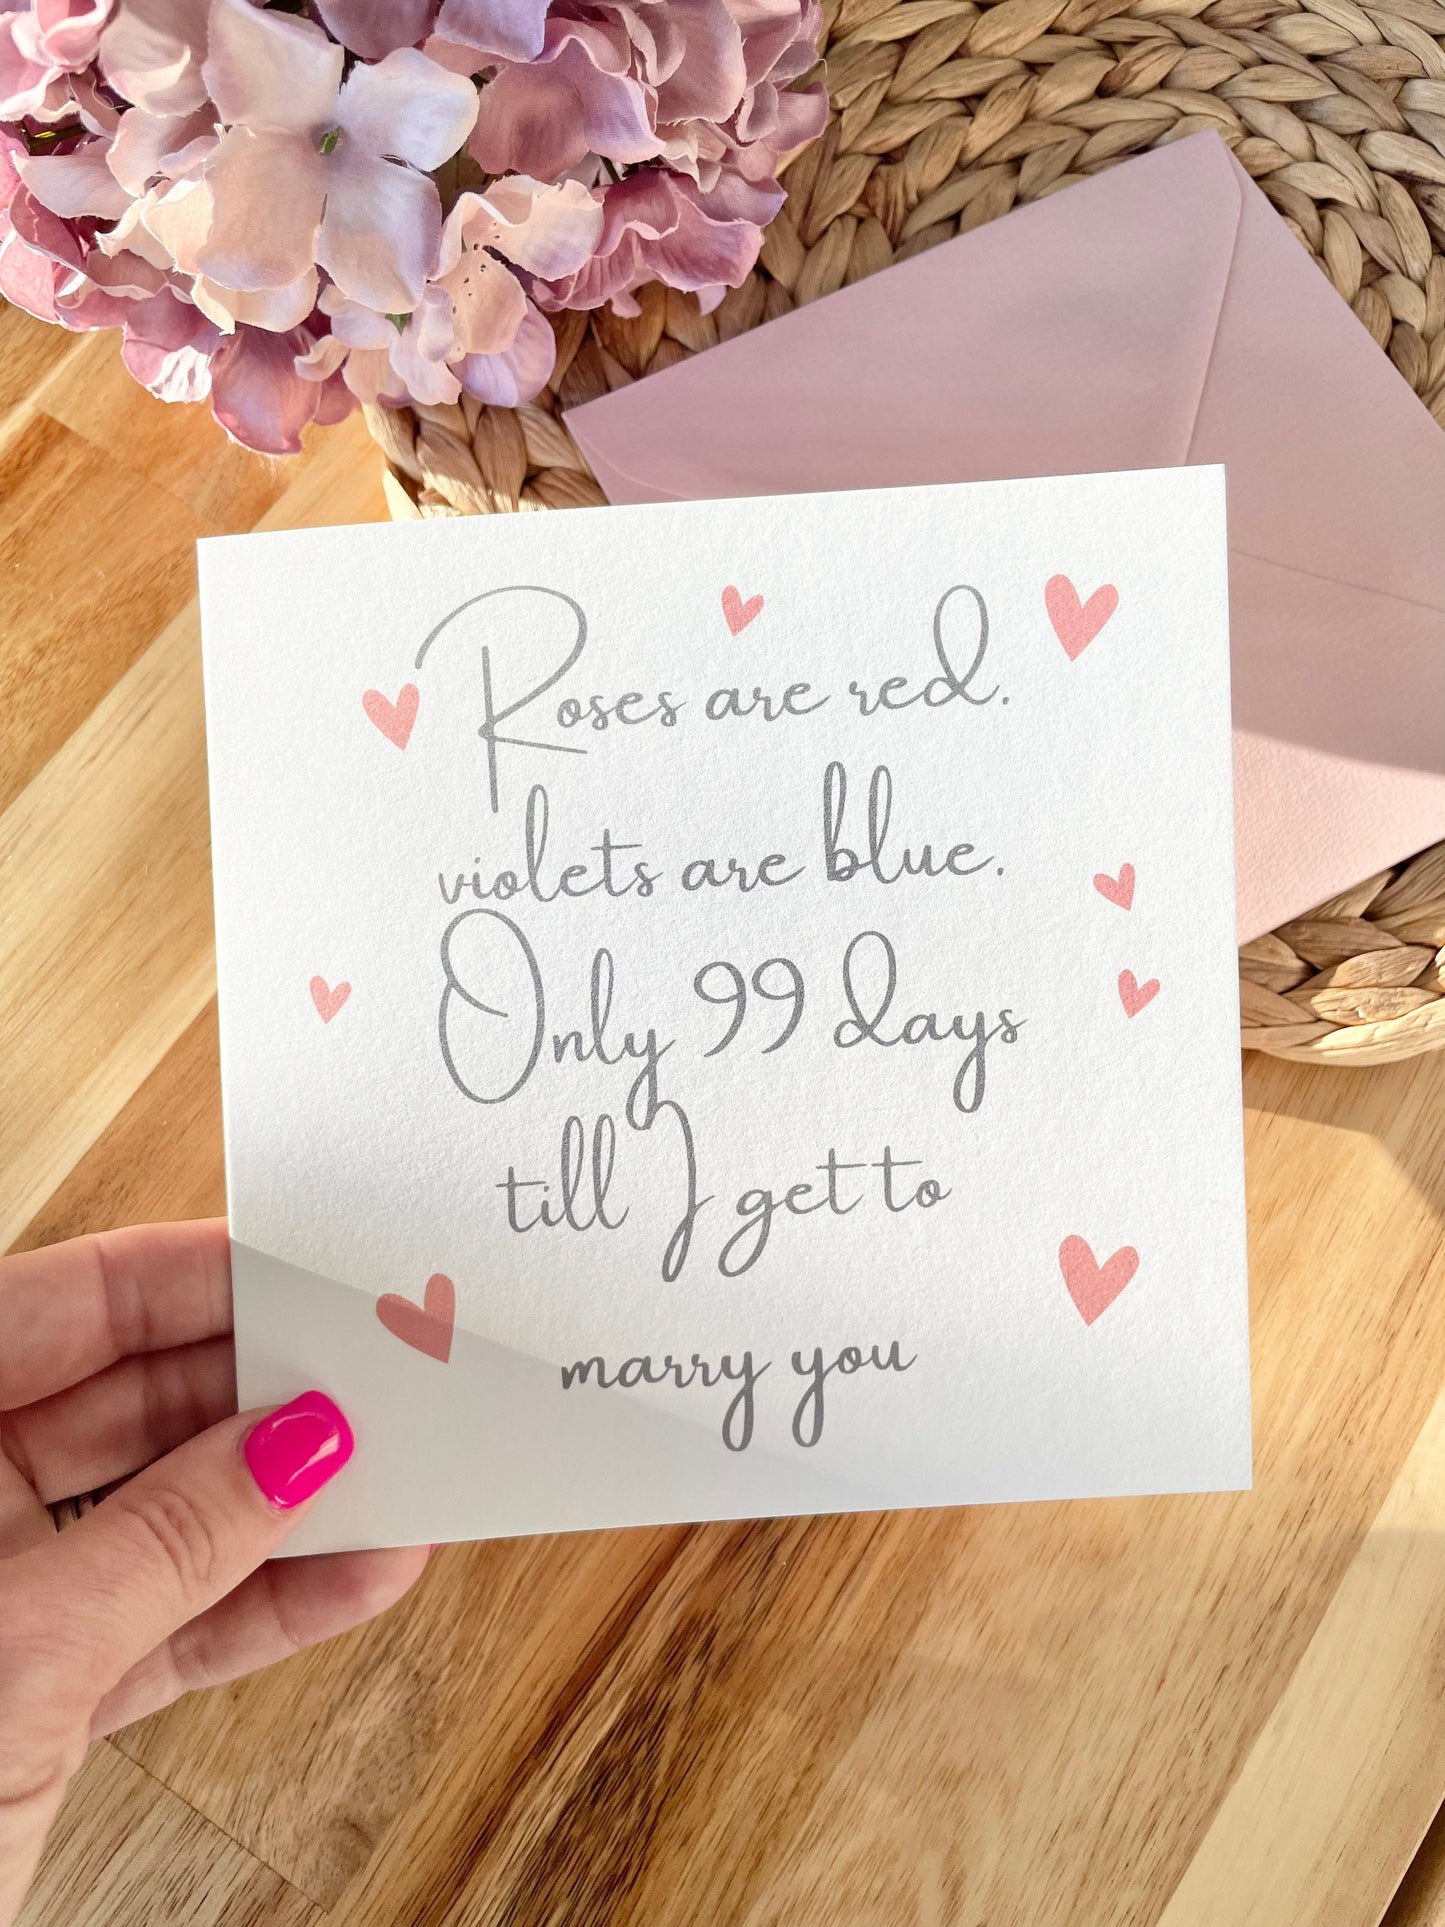 Roses are red.
violets are blue.
Only 99 days
till I get to
marry you